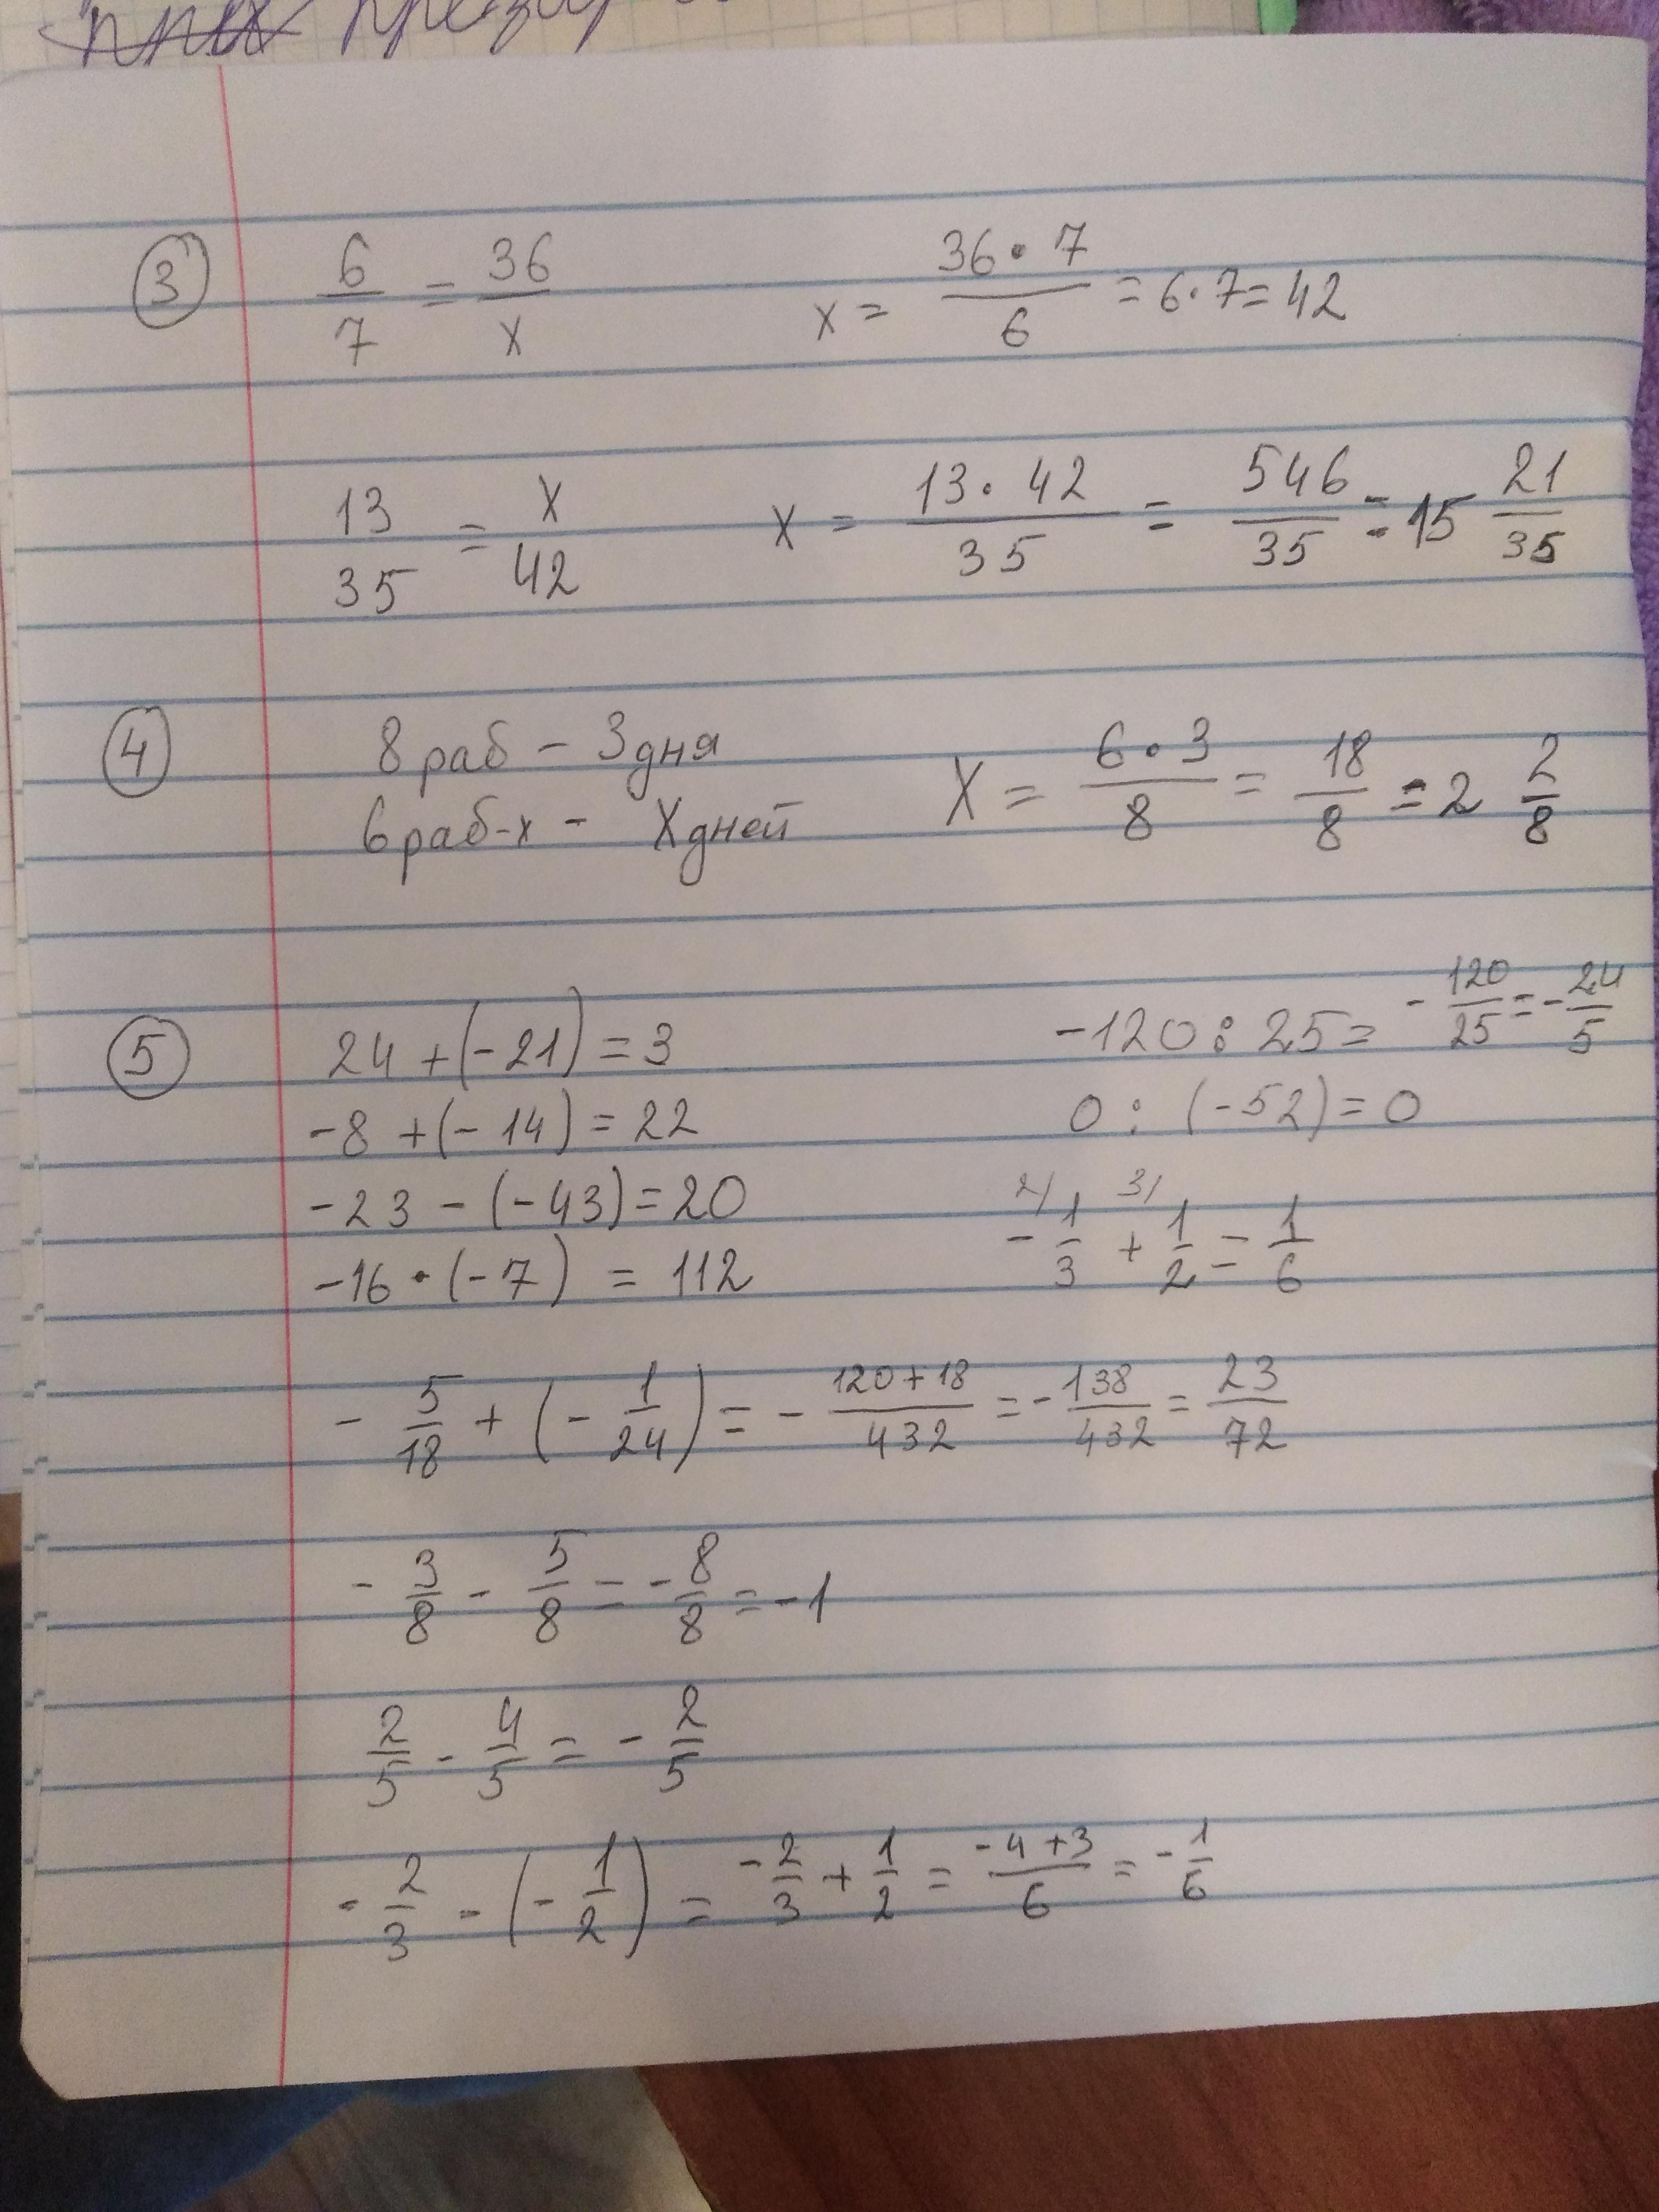 ③ 6/7 = 36/x x = 36·7/6 = 6·7 = 42
13/35 = x/42 x = 13·42/35 = 546/35 = 15 21/35
④ 8 раб – 3 дня
6 раб-х – X дней X = 6·3/8 = 18/8 = 2 2/8
⑤ 24 + (-21) = 3 -120 : 25 = -120/25 = -24/5
-8 + (-14) = 22 0 : (-52) = 0
-23 - (-43) = 20 2/ 3/
-16 · (-7) = 112 -1/3 + 1/2 = 1/6
-5/18 + (-1/24) = -120+18/432 = -138/432 = 23/72
-3/8 - 5/8 = -8/8 = -1
2/5 - 4/5 = -2/5
-2/3 - (-1/2) = -2/3 + 1/2 = -4+3/6 = -1/6